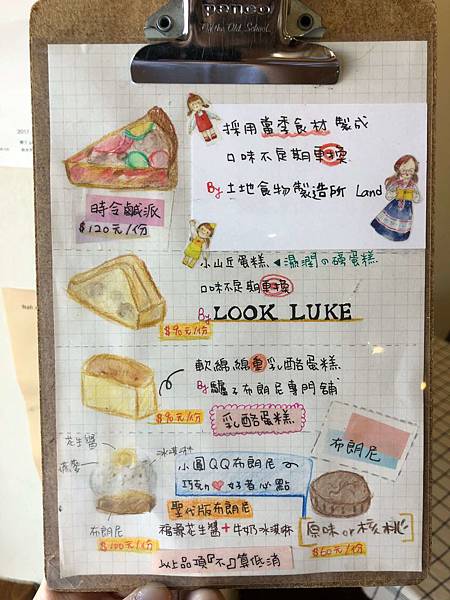 penco
Fly the Old School.
2017
採用當季食材製成
口味不定期更換
By 土地食物製造所 Land
時令鹹派
$120元/份
小山丘蛋糕◀濕潤の磅蛋糕
口味不定期更換
By LOOK LUKE
$90元/份
軟綿綿重乳酪蛋糕
By 驢子布朗尼專門舖
$90元/份
乳酪蛋糕
布朗尼
花生醬
冰淇淋
燕麥
布朗尼
$100元/份
小圓QQ布朗尼
巧克力♥好者必點
聖代版布朗尼
福源花生醬+牛奶冰淇淋
原味or核桃
$60元/份
以上品項『不』算低消